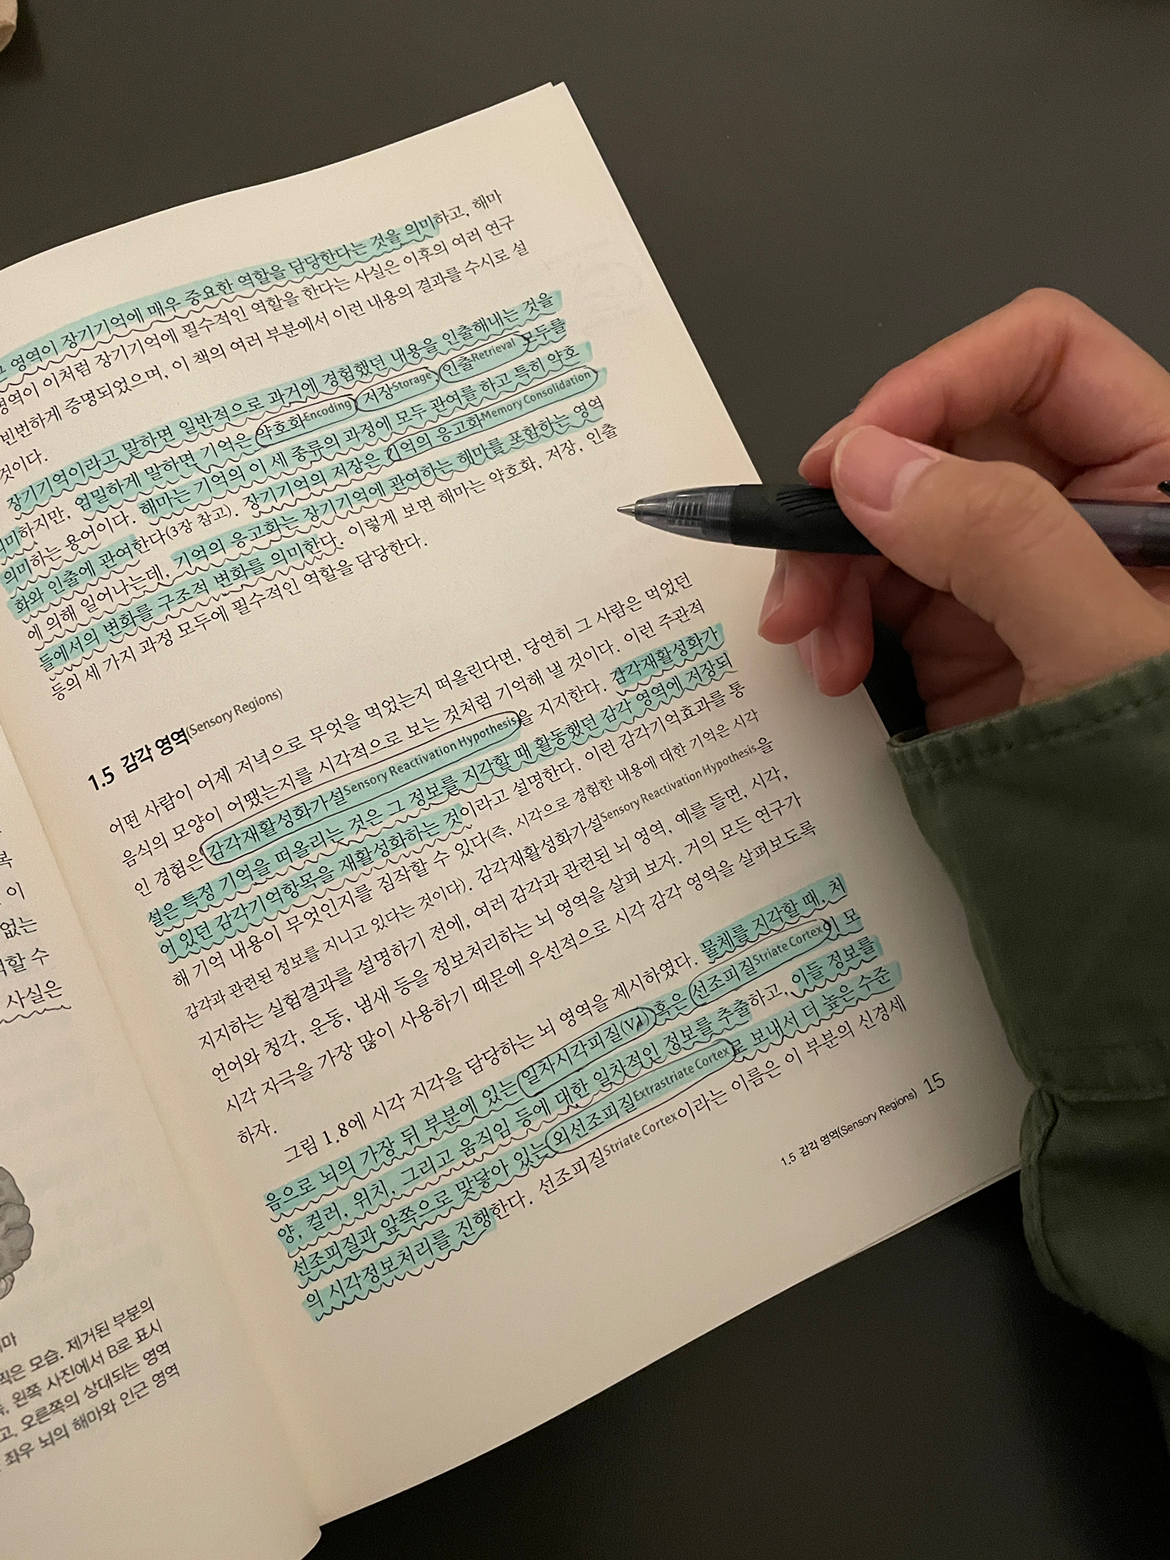 영역이 장기기억에 매우 중요한 역할을 담당한다는 것을 의미하고, 해마
영역이 이처럼 장기기억에 필수적인 역할을 한다는 사실은 이후의 여러 연구
빈번하게 증명되었으며, 이 책의 여러 부분에서 이런 내용의 결과를 수시로 설
것이다.
장기기억이라고 말하면 일반적으로 과거에 경험했던 내용을 인출해내는 것을
의미하지만, 엄밀하게 말하면 기억은 약호화Encoding, 저장Storage, 인출Retrieval 모두를
의미하는 용어이다. 해마는 기억의 이 세 종류의 과정에 모두 관여를 하고 특히 약호
화와 인출에 관여한다(3장 참고). 장기기억의 저장은 기억의 응고화Memory Consolidation
에 의해 일어나는데, 기억의 응고화는 장기기억에 관여하는 해마를 포함하는 영역
들에서의 변화를 구조적 변화를 의미한다. 이렇게 보면 해마는 약호화, 저장, 인출
등의 세 가지 과정 모두에 필수적인 역할을 담당한다.
1.5 감각 영역(Sensory Regions)
어떤 사람이 어제 저녁으로 무엇을 먹었는지 떠올린다면, 당연히 그 사람은 먹었던
음식의 모양이 어땠는지를 시각적으로 보는 것처럼 기억해 낼 것이다. 이런 주관적
인 경험은 감각재활성화가설Sensory Reactivation Hypothesis을 지지한다. 감각재활성화가
설은 특정 기억을 떠올리는 것은 그 정보를 지각할 때 활동했던 감각 영역에 저장되
어 있던 감각기억항목을 재활성화하는 것이라고 설명한다. 이런 감각기억효과를 통
해 기억 내용이 무엇인지를 짐작할 수 있다(즉, 시각으로 경험한 내용에 대한 기억은 시각
감각과 관련된 정보를 지니고 있다는 것이다). 감각재활성화가설Sensory Reactivation Hypothesis을
지지하는 실험결과를 설명하기 전에, 여러 감각과 관련된 뇌 영역, 예를 들면, 시각,
언어와 청각, 운동, 냄새 등을 정보처리하는 뇌 영역을 살펴 보자. 거의 모든 연구가
시각 자극을 가장 많이 사용하기 때문에 우선적으로 시각 감각 영역을 살펴보도록
하자.
그림 1.8에 시각 지각을 담당하는 뇌 영역을 제시하였다. 물체를 지각할 때, 처
음으로 뇌의 가장 뒤 부분에 있는 일차시각피질(V1) 혹은 선조피질Striate Cortex이 모
양, 컬러, 위치, 그리고 움직임 등에 대한 일차적인 정보를 추출하고, 이들 정보를
선조피질과 앞쪽으로 맞닿아 있는 외선조피질Extrastriate Cortex로 보내서 더 높은 수준
의 시각정보처리를 진행한다. 선조피질Striate Cortex이라는 이름은 이 부분의 신경세
1.5 감각 영역(Sensory Regions) 15
이
없는
할 수
사실은
찍은 모습. 제거된 부분의
왼쪽 사진에서 B로 표시
고, 오른쪽의 상대되는 영역
좌우 뇌의 해마와 인근 영역